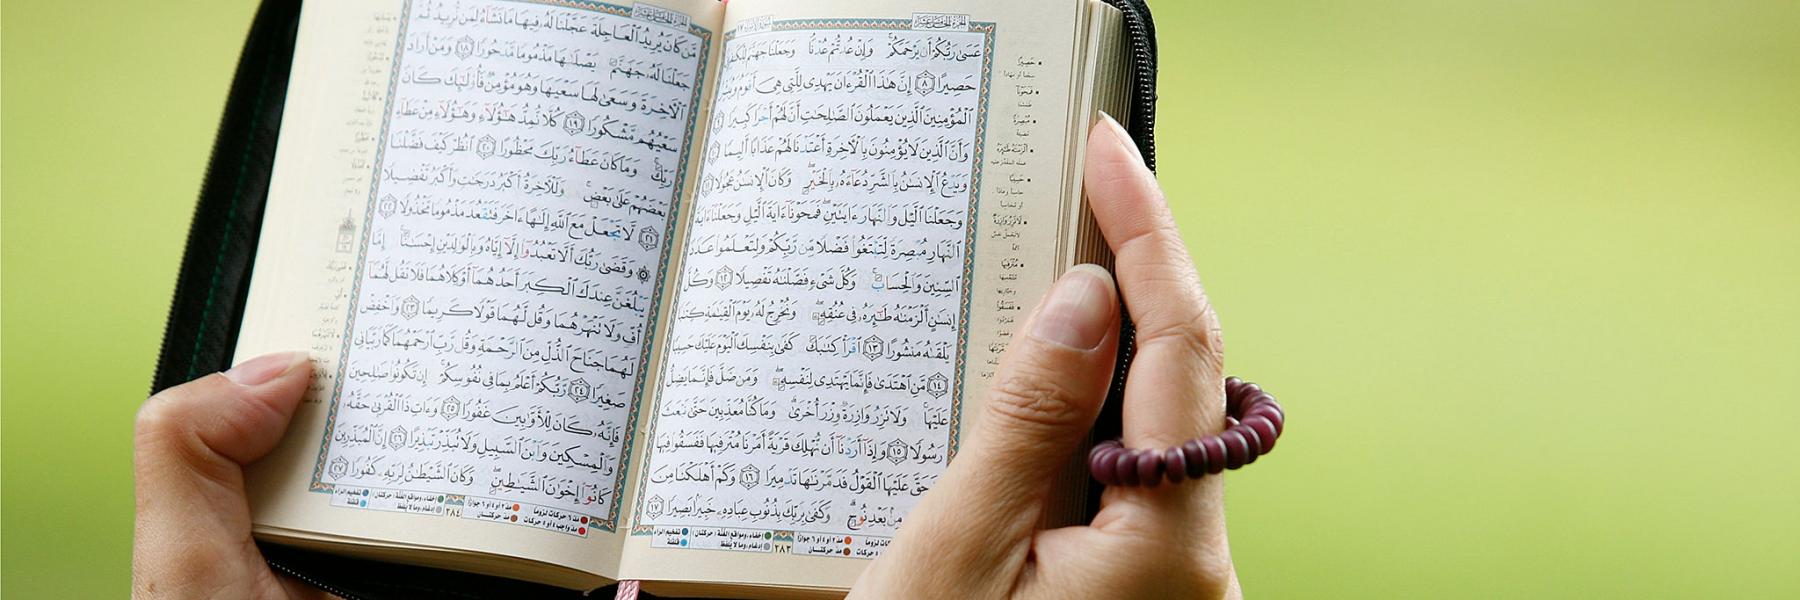 الجزء الخامس عشر
عَسَىٰ رَبُّكُمْ أَن يَرْحَمَكُمْ ۚ وَإِنْ عُدتُّمْ عُدْنَا ۘ وَجَعَلْنَا جَهَنَّمَ
حَصِيرًا ٨ إِنَّ هَٰذَا ٱلْقُرْءَانَ يَهْدِى لِلَّتِى هِىَ أَقْوَمُ
ٱلْمُؤْمِنِينَ ٱلَّذِينَ يَعْمَلُونَ ٱلصَّٰلِحَٰتِ أَنَّ لَهُمْ أَجْرًا كَبِيرًا
وَأَنَّ ٱلَّذِينَ لَا يُؤْمِنُونَ بِٱلْءَاخِرَةِ أَعْتَدْنَا لَهُمْ عَذَابًا أَلِيمًا
وَيَدْعُ ٱلْإِنسَٰنُ بِٱلشَّرِّ دُعَآءَهُۥ بِٱلْخَيْرِ ۖ وَكَانَ ٱلْإِنسَٰنُ عَجُولًا
وَجَعَلْنَا ٱلَّيْلَ وَٱلنَّهَارَ ءَايَتَيْنِ ۖ فَمَحَوْنَآ ءَايَةَ ٱلَّيْلِ وَجَعَلْنَآ ءَايَةَ
ٱلنَّهَارِ مُبْصِرَةً لِّتَبْتَغُوا۟ فَضْلًا مِّن رَّبِّكُمْ وَلِتَعْلَمُوا۟ عَدَدَ
ٱلسِّنِينَ وَٱلْحِسَابَ ۚ وَكُلَّ شَىْءٍ فَصَّلْنَٰهُ تَفْصِيلًا ١٢ وَكُلَّ
إِنسَٰنٍ أَلْزَمْنَٰهُ طَٰٓئِرَهُۥ فِى عُنُقِهِۦ ۖ وَنُخْرِجُ لَهُۥ يَوْمَ ٱلْقِيَٰمَةِ كِتَٰبًا
يَلْقَىٰهُ مَنشُورًا ١٣ ٱقْرَأْ كِتَٰبَكَ كَفَىٰ بِنَفْسِكَ ٱلْيَوْمَ عَلَيْكَ حَسِيبًا
١٤ مَّنِ ٱهْتَدَىٰ فَإِنَّمَا يَهْتَدِى لِنَفْسِهِۦ ۖ وَمَن ضَلَّ فَإِنَّمَا يَضِلُّ
عَلَيْهَا ۚ وَلَا تَزِرُ وَازِرَةٌ وِزْرَ أُخْرَىٰ ۗ وَمَا كُنَّا مُعَذِّبِينَ حَتَّىٰ نَبْعَثَ
رَسُولًا ١٥ وَإِذَآ أَرَدْنَآ أَن نُّهْلِكَ قَرْيَةً أَمَرْنَا مُتْرَفِيهَا فَفَسَقُوا۟ فِيهَا
فَحَقَّ عَلَيْهَا ٱلْقَوْلُ فَدَمَّرْنَٰهَا تَدْمِيرًا ١٦ وَكَمْ أَهْلَكْنَا مِنَ
مِنۢ بَعْدِ نُوحٍ ۗ وَكَفَىٰ بِرَبِّكَ بِذُنُوبِ عِبَادِهِۦ خَبِيرًۢا بَصِيرًا ١٧
٢٨٣
الجزء الخامس عشر
مَّن كَانَ يُرِيدُ ٱلْعَاجِلَةَ عَجَّلْنَا لَهُۥ فِيهَا مَا نَشَآءُ لِمَن نُّرِيدُ ثُمَّ
جَعَلْنَا لَهُۥ جَهَنَّمَ يَصْلَىٰهَا مَذْمُومًا مَّدْحُورًا ١٨ وَمَنْ أَرَادَ
ٱلْءَاخِرَةَ وَسَعَىٰ لَهَا سَعْيَهَا وَهُوَ مُؤْمِنٌ فَأُو۟لَٰٓئِكَ كَانَ
سَعْيُهُم مَّشْكُورًا ١٩ كُلًّا نُّمِدُّ هَٰٓؤُلَآءِ وَهَٰٓؤُلَآءِ مِنْ عَطَآءِ
رَبِّكَ ۚ وَمَا كَانَ عَطَآءُ رَبِّكَ مَحْظُورًا ٢٠ ٱنظُرْ كَيْفَ فَضَّلْنَا
بَعْضَهُمْ عَلَىٰ بَعْضٍ ۚ وَلَلْءَاخِرَةُ أَكْبَرُ دَرَجَٰتٍ وَأَكْبَرُ تَفْضِيلًا
٢١ لَّا تَجْعَلْ مَعَ ٱللَّهِ إِلَٰهًا ءَاخَرَ فَتَقْعُدَ مَذْمُومًا مَّخْذُولًا ٢٢
۞ وَقَضَىٰ رَبُّكَ أَلَّا تَعْبُدُوٓا۟ إِلَّآ إِيَّاهُ وَبِٱلْوَٰلِدَيْنِ إِحْسَٰنًا ۚ إِمَّا
يَبْلُغَنَّ عِندَكَ ٱلْكِبَرَ أَحَدُهُمَآ أَوْ كِلَاهُمَا فَلَا تَقُل لَّهُمَآ
أُفٍّ وَلَا تَنْهَرْهُمَا وَقُل لَّهُمَا قَوْلًا كَرِيمًا ٢٣ وَٱخْفِضْ
لَهُمَا جَنَاحَ ٱلذُّلِّ مِنَ ٱلرَّحْمَةِ وَقُل رَّبِّ ٱرْحَمْهُمَا كَمَا رَبَّيَانِى
صَغِيرًا ٢٤ رَّبُّكُمْ أَعْلَمُ بِمَا فِى نُفُوسِكُمْ ۚ إِن تَكُونُوا۟ صَٰلِحِينَ
فَإِنَّهُۥ كَانَ لِلْأَوَّٰبِينَ غَفُورًا ٢٥ وَءَاتِ ذَا ٱلْقُرْبَىٰ حَقَّهُۥ
وَٱلْمِسْكِينَ وَٱبْنَ ٱلسَّبِيلِ وَلَا تُبَذِّرْ تَبْذِيرًا ٢٦ إِنَّ ٱلْمُبَذِّرِينَ
كَانُوٓا۟ إِخْوَٰنَ ٱلشَّيَٰطِينِ ۖ وَكَانَ ٱلشَّيْطَٰنُ لِرَبِّهِۦ كَفُورًا ٢٧
مدّ ٦ حركات لزوماً مدّ ٢ أو ٤ أو ٦ جوازاً إخفاء، ومواقع الغُنَّة (حركتان) تفخيم الراء
مدّ واجب ٤ أو ٥ حركات مدّ حركتان ٢٨٤ إدغام، وما لا يُلفظ قلقلة